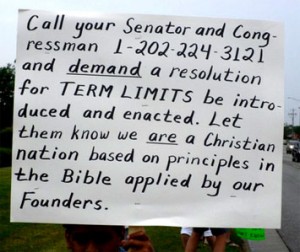 Call your Senator and Cong-
ressman 1-202-224-3121
and demand a resolution
for TERM LIMITS be intro-
duced and enacted. Let
them know we are a Christian
nation based on principles in
the Bible applied by our
Founders.